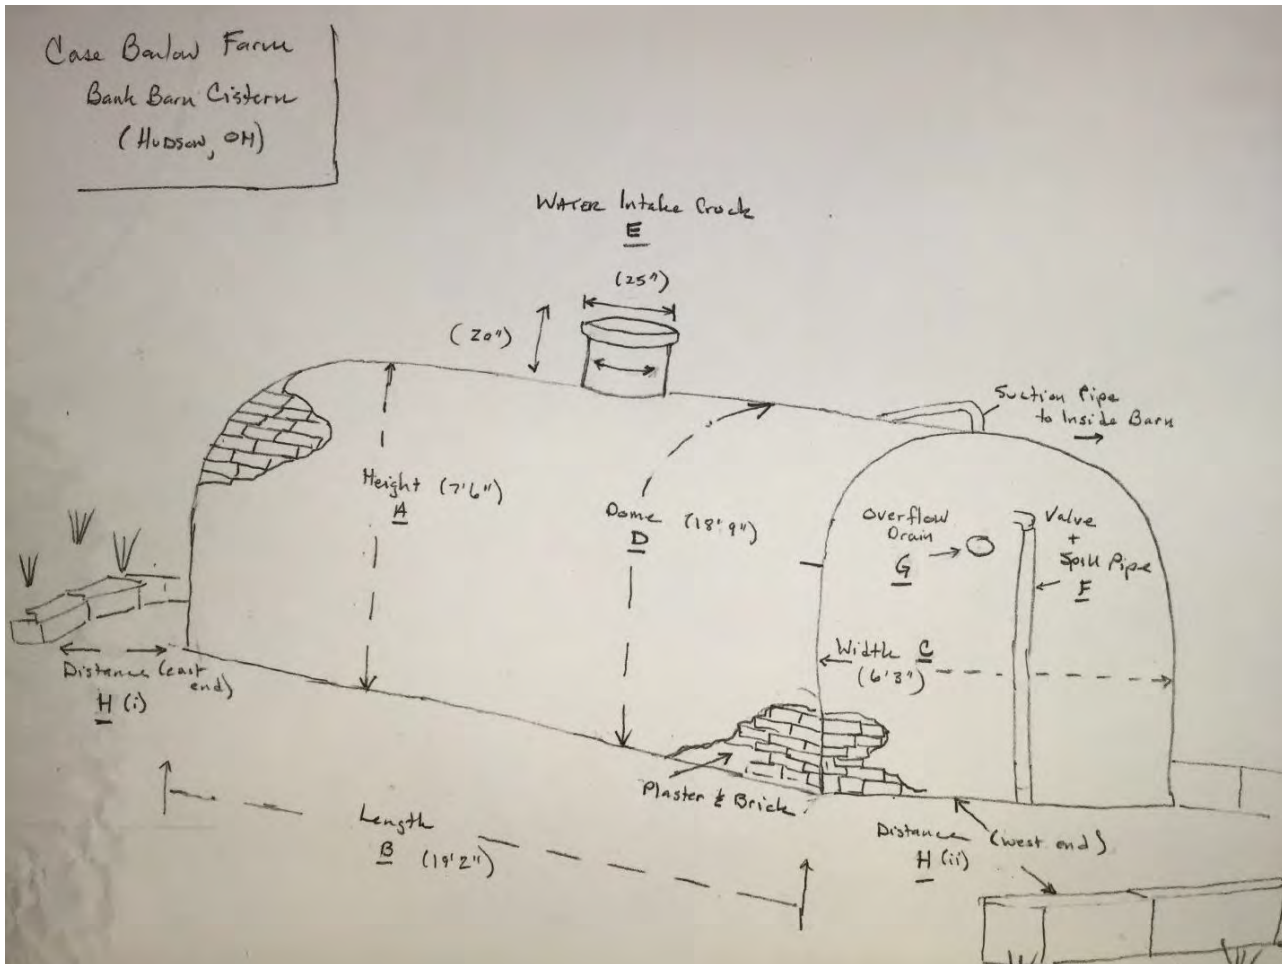 Case Barlow Farm
Bank Barn Cistern
(HUDSON, OH)
WATER Intake Crock
E
(25")
(20")
Suction Pipe
to Inside Barn
Height (7'6")
A
Dome (18'9")
D
Overflow
Drain
G
Valve
+
Spill Pipe
F
Width C
(6'3")
Distance (east
end)
H (i)
Plaster & Brick
Length
B (19'2")
Distance (west end)
H (ii)